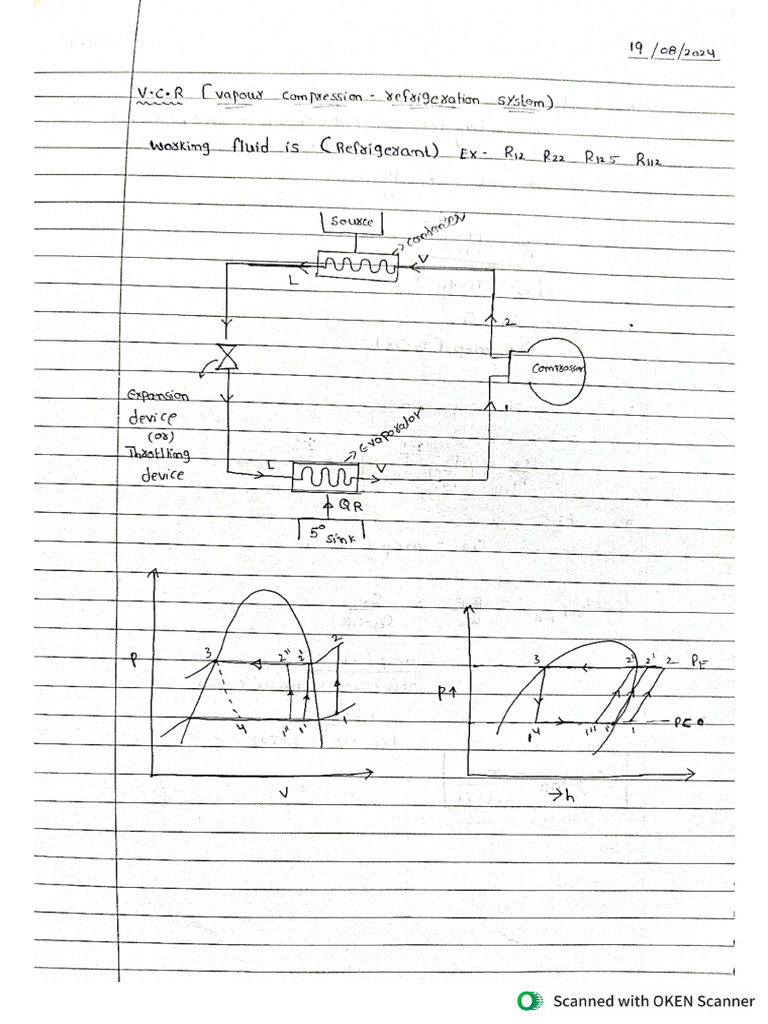 19/08/2024
V.C.R (vapour compression - refrigeration system)
working fluid is (Refrigerant) Ex - R12 R22 R125 R112
Source
condenser
L
V
2
compressor
Expansion
device
(or)
Throttling
device
1
Evaporator
L
V
QR
5° Sink
P
3
2"
2'
2
4
1"
1'
1
V
P↑
3
2"
2'
2
4
1"
1'
1
→h
Scanned with OKEN Scanner